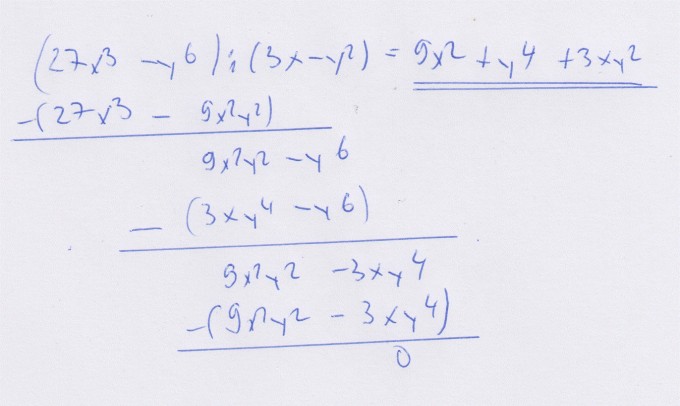 (27x³ - y⁶) : (3x - y²) = 9x² + y⁴ + 3xy²
-(27x³ - 9x²y²)
9x²y² - y⁶
- (3xy⁴ - y⁶)
9x²y² - 3xy⁴
-(9x²y² - 3xy⁴)
0